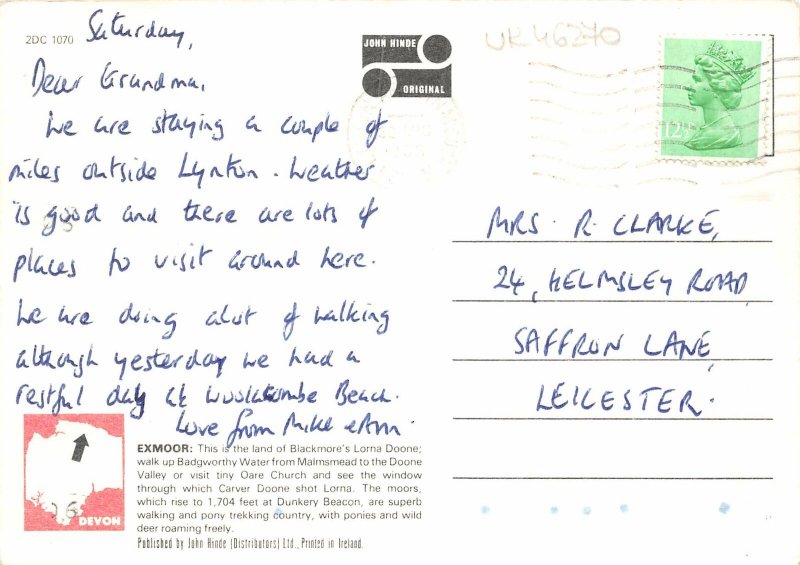 2DC 1070
Saturday,
Dear Grandma,
We are staying a couple of
miles outside Lynton. Weather
is good and there are lots of
places to visit around here.
We are doing alot of walking
although yesterday we had a
restful day at Woolacombe Beach.
Love from Mike & Ann.
JOHN HINDE
ORIGINAL
UK46270
12½P
MRS. R. CLARKE,
24, HELMSLEY ROAD,
SAFFRON LANE,
LEICESTER.
DEVON
EXMOOR: This is the land of Blackmore's Lorna Doone;
walk up Badgworthy Water from Malmsmead to the Doone
Valley or visit tiny Oare Church and see the window
through which Carver Doone shot Lorna. The moors,
which rise to 1,704 feet at Dunkery Beacon, are superb
walking and pony trekking country, with ponies and wild
deer roaming freely.
Published by John Hinde (Distributors) Ltd., Printed in Ireland.